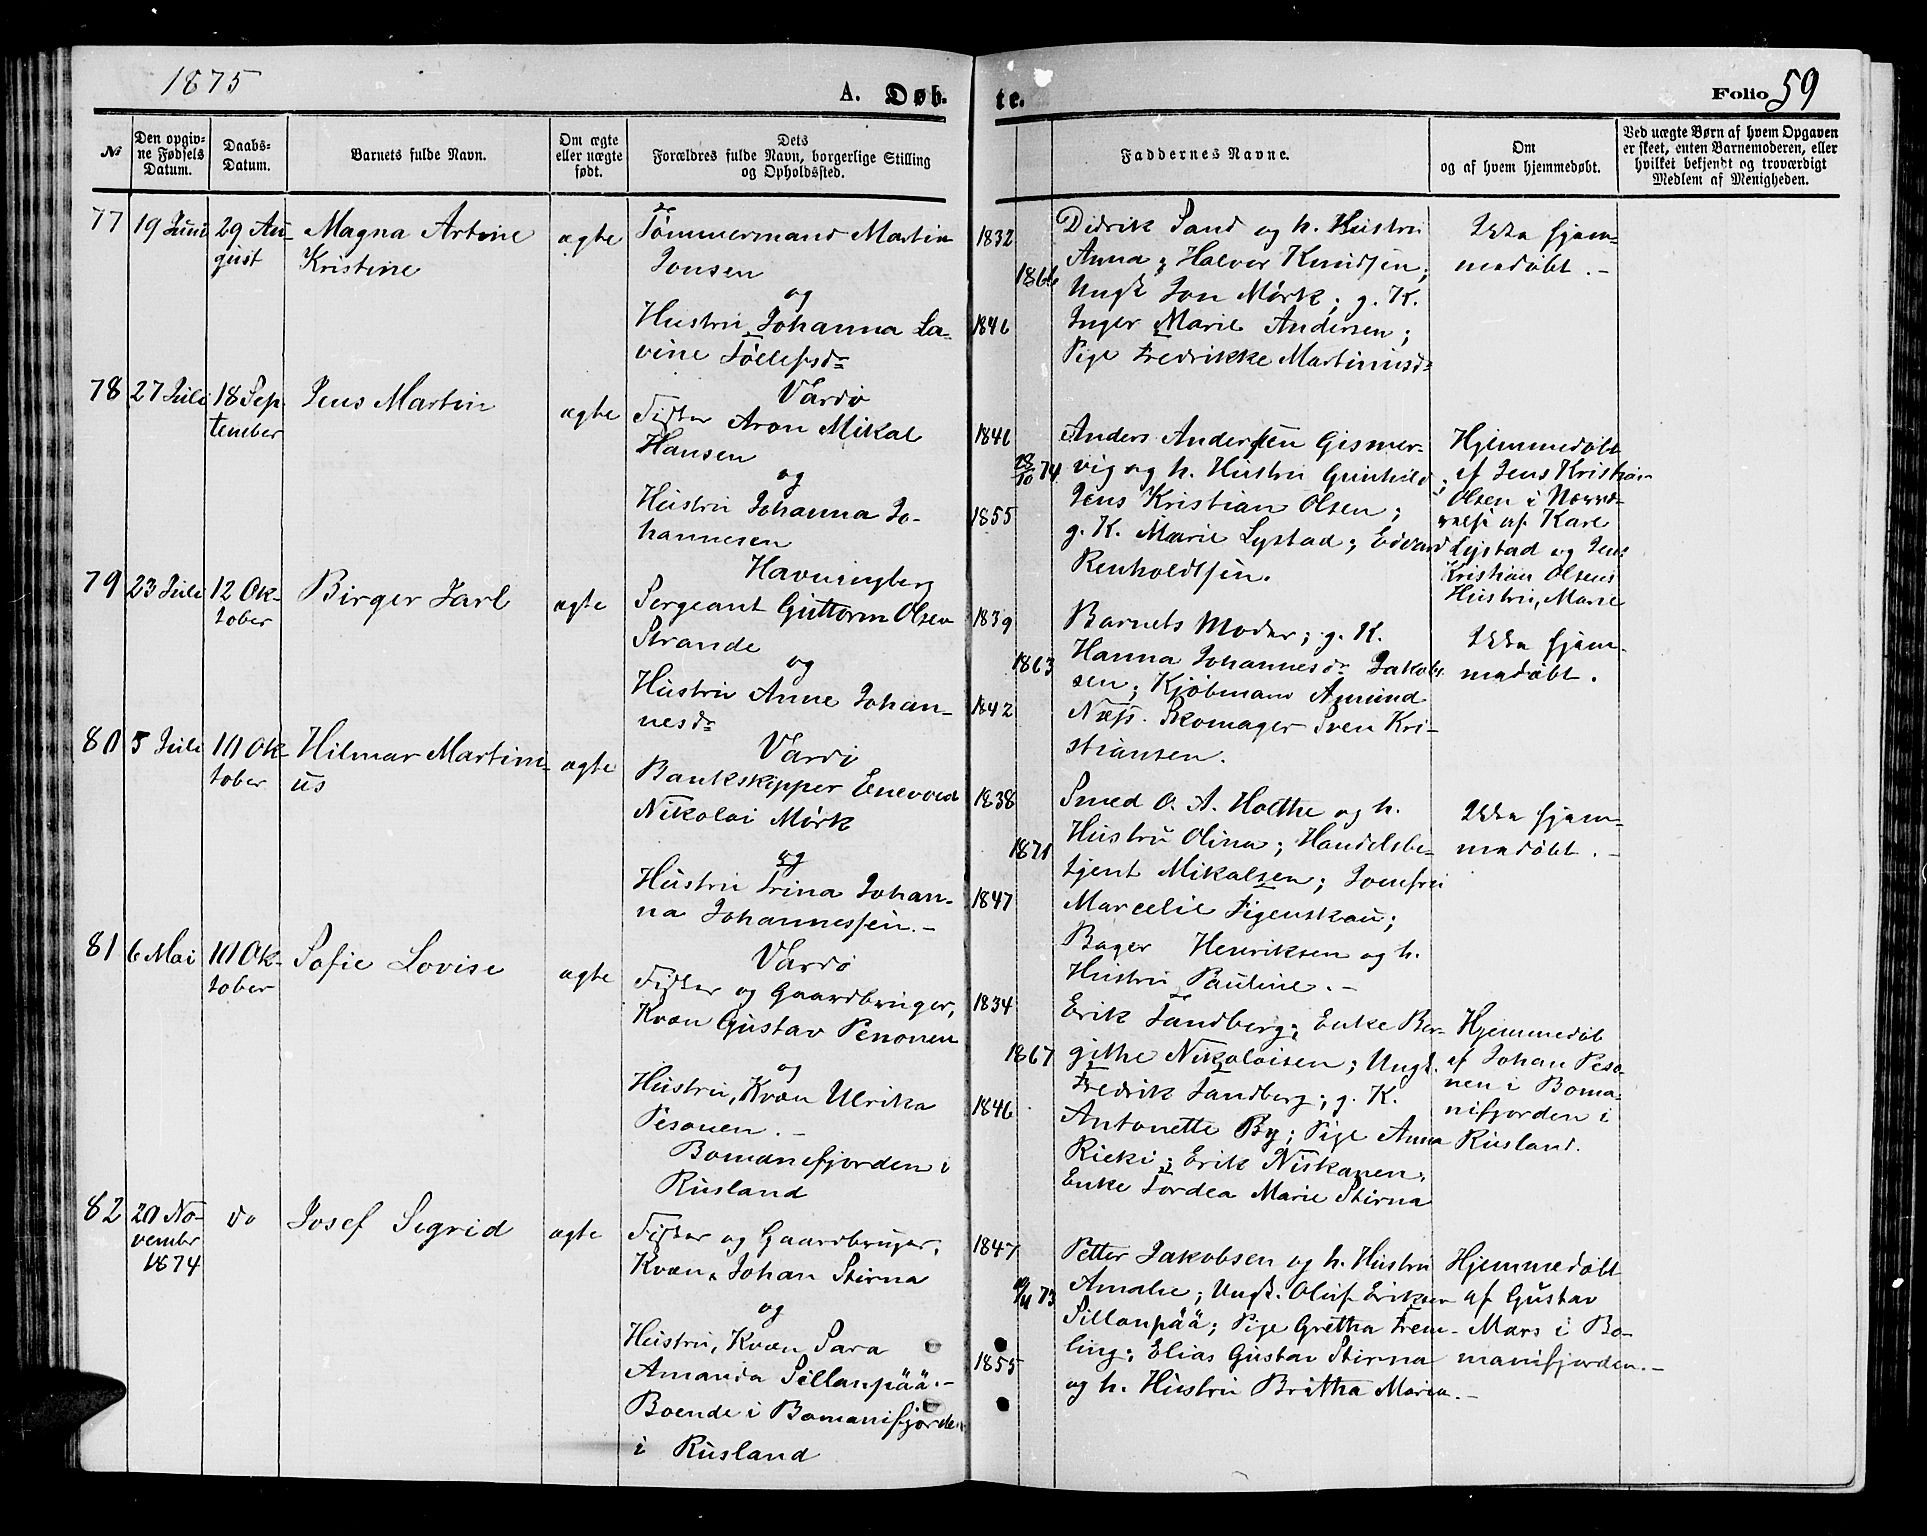 1875
A. Døb-
te.
Folio 59
No
Den opgiv-
ne Fødsels
Datum.
Daabs-
Datum.
Barnets fulde Navn.
Om ægte
eller uægte
født.
Dets
Forældres fulde Navn, borgerlige Stilling
og Opholdssted.
Faddernes Navne.
Om
og af hvem hjemmedøbt.
Ved uægte Børn af hvem Opgaven
er skeet, enten Barnemoderen, eller
hvilket bekjendt og troværdigt
Medlem af Menigheden.
77
19 Juni
29 Au-
gust
Magna Artine
Kristine
ægte
Tømmermand Martin
Jonsen
og
Hustru Johanna La-
vine Tøllefsdr
Vardø
1832
1866
1846
Didrik Sand og h. Hustru
Anna; Halvor Knudsen;
Ungk Jon Mørk; g. K.
Inger Marie Andersen;
Pige Fredrikke Martinusdr
Ikke hjem-
medøbt. -
78
27 Juli
18 Sep-
tember
Jens Martin
ægte
Fisker Aron Mikal
Hansen
og
Hustru Johanna Jo-
hannesen
Havningberg
1846
28/10 74
1855
Anders Andersen Gismer-
vig og h. Hustru Gunhild;
Jens Kristian Olsen;
g. K. Marie Lystad; Edvard
Renholdtsen.
Hjemmedøbt
af Jens Kristian
Olsen i Nærvæ-
relse af Karl
Lystad og Jens
Kristian Olsens
Hustru, Marie
79
23 Juli
12 Ok-
tober
Birger Jarl
ægte
Sergeant Guttorm Olsen
Strande
og
Hustru Anne Johan-
nesdr
Vardø
1839
1863
1842
Barnets Moder; g. K.
Hanna Johannesdr Jakob-
sen; Kjøbmand Amund
Næss. Skomager Sven Kri-
stiansen.
Ikke hjem-
medøbt.
80
5 Juli
10 Ok-
tober
Hilmar Martini-
us
ægte
Bankskipper Enevold
Nikolai Mørk
og
Hustru Trina Johan-
na Johannessen. -
Vardø
1838
1871
1847
Smed O. A. Holthe og h.
Hustru Olina; Handelsbe-
tjent Mikalsen; Jomfru
Marcelie Figenskau;
Bager Henriksen og h.
Hustru Pauline. -
Ikke hjem-
medøbt. -
81
6 Mai
10 Ok-
tober
Sofie Lovise
ægte
Fisker og Gaardbruger,
Kvæn Gustav Penonen
og
Hustru, Kvæn Ulrika
Pesonen. -
Bomanefjorden i
Rusland
1834
1867
1846
Erik Tandberg; Enke Ber-
githe Nikolaisen; Ungk.
Fredrik Tandberg; g. K.
Antonette By; Pige Anna
Rieki; Erik Niskanen;
Enke Tordea Marie Stirna
Hjemmedøb
af Johan Peso-
nen i Boma-
nifjorden i
Rusland.
82
20 No-
vembr
1874
do
Josef Sigrid
ægte
Fisker og Gaardbruger,
Kvæn, Johan Stirna
og
Hustru, Kvæn Sara
Amanda Sillanpää. -
Boende i Bomanifjorden
i Rusland
1847
73
1855
Petter Jakobsen og h. Hustru
Amalie; Ungk. Oluf Eriksen
Sillanpää; Pige Gretha Frem-
ling; Elias Gustav Stirna
og h. Hustru Britha Maria. -
Hjemmedøbt
af Gustav
Mars i Bo-
manifjorden. -